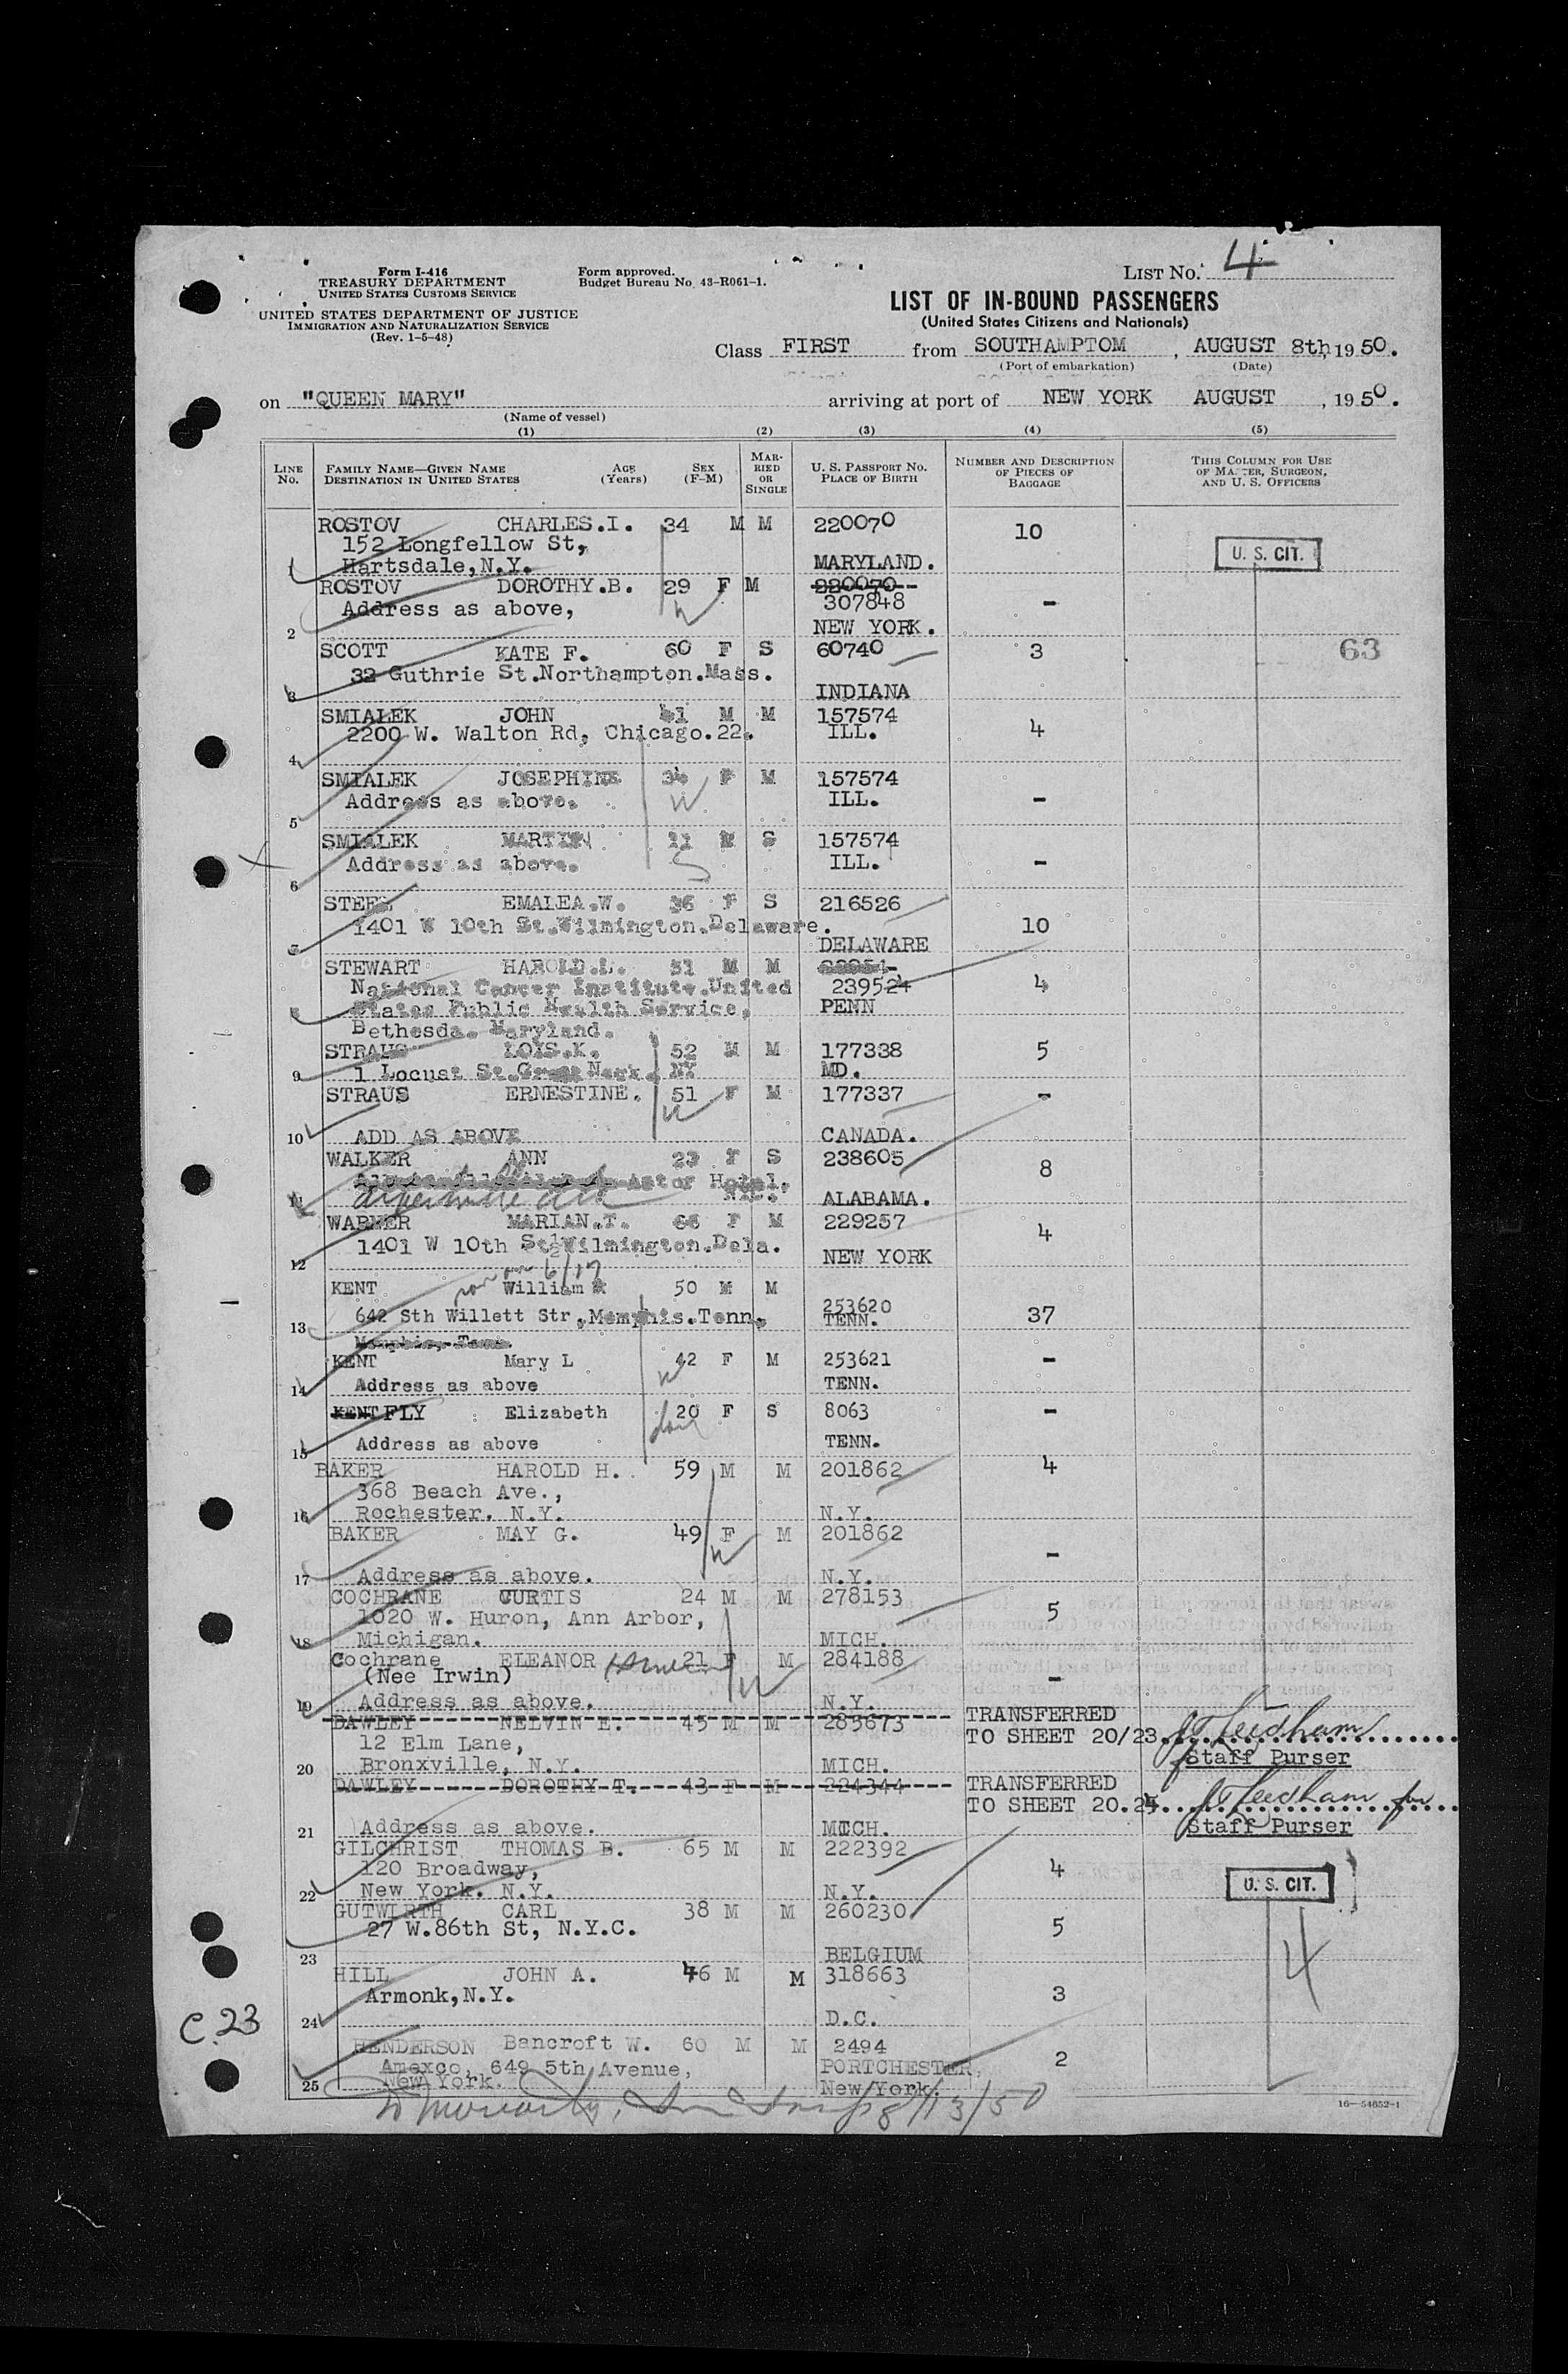 Form I-416
TREASURY DEPARTMENT
UNITED STATES CUSTOMS SERVICE
UNITED STATES DEPARTMENT OF JUSTICE
IMMIGRATION AND NATURALIZATION SERVICE
(Rev. 1-5-48)
Form approved.
Budget Bureau No. 43-R061-1.
LIST NO. 4
LIST OF IN-BOUND PASSENGERS
(United States Citizens and Nationals)
Class FIRST from SOUTHAMPTOM, AUGUST 8th, 1950.
(Port of embarkation) (Date)
on "QUEEN MARY" arriving at port of NEW YORK AUGUST, 1950.
(Name of vessel)
(1) (2) (3) (4) (5)
LINE NO.
FAMILY NAME—GIVEN NAME
DESTINATION IN UNITED STATES
AGE (Years)
SEX (F-M)
MARRIED OR SINGLE
U. S. PASSPORT NO.
PLACE OF BIRTH
NUMBER AND DESCRIPTION OF PIECES OF BAGGAGE
THIS COLUMN FOR USE OF MASTER, SURGEON, AND U. S. OFFICERS
ROSTOV CHARLES.I. 34 M M 220070 10
152 Longfellow St,
Hartsdale,N.Y. MARYLAND.
U. S. CIT.
ROSTOV DOROTHY.B. 29 F M 220070
Address as above, 307848 -
2 NEW YORK.
SCOTT KATE F. 60 F S 60740 3
63
32 Guthrie St.Northampton.Mass.
3 INDIANA
SMIALEK JOHN 41 M M 157574 4
2200 W. Walton Rd, Chicago.22. ILL.
4
SMIALEK JOSEPHINE 34 F M 157574
Address as above. ILL. -
5
SMIALEK MARTIN 11 M S 157574
Address as above. ILL. -
6
STEEL EMALEA.W. 36 F S 216526
1401 W 10th St.Wilmington.Delaware. 10
7 DELAWARE
STEWART HAROLD.L. 51 M M
National Cancer Institute.United 239524 4
8 States Public Health Service, PENN
Bethesda. Maryland.
STRAUS LOIS.K. 52 M M 177338 5
9 1 Locust St.Great Neck. NY MD.
STRAUS ERNESTINE. 51 F M 177337 -
10 ADD AS ABOVE CANADA.
WALKER ANN 23 F S 238605 8
Astor Hotel.
11 ALABAMA.
WARNER MARIAN.T. 66 F M 229257 4
1401 W 10th St½Wilmington.Dela. NEW YORK
12
KENT William 50 M M
642 Sth Willett Str,Memphis.Tenn, 253620 37
13 TENN.
Memphis, Tenn.
KENT Mary L 42 F M 253621 -
14 Address as above TENN.
KENT FLY Elizabeth 20 F S 8063 -
15 Address as above TENN.
BAKER HAROLD H. 59 M M 201862 4
368 Beach Ave.,
16 Rochester. N.Y. N.Y.
BAKER MAY G. 49 F M 201862 -
17 Address as above. N.Y.
COCHRANE CURTIS 24 M M 278153 5
1020 W. Huron, Ann Arbor,
18 Michigan. MICH.
Cochrane ELEANOR 21 F M 284188
(Nee Irwin) -
19 Address as above. N.Y.
DAWLEY NELVIN E. 45 M M 285673 TRANSFERRED
12 Elm Lane, TO SHEET 20/23
20 Bronxville, N.Y. MICH. Staff Purser
DAWLEY DOROTHY T. 43 F M 224344 TRANSFERRED
TO SHEET 20.24
21 Address as above. MICH. Staff Purser
GILCHRIST THOMAS B. 65 M M 222392 4
120 Broadway,
22 New York. N.Y. N.Y.
U. S. CIT.
GUTWIRTH CARL 38 M M 260230 5
27 W.86th St, N.Y.C.
23 BELGIUM
4
HILL JOHN A. 46 M M 318663 3
Armonk,N.Y.
24 D.C.
C.23
HENDERSON Bancroft W. 60 M M 2494 2
Amexco, 649 5th Avenue, PORTCHESTER,
25 New York. New York.
8/13/50
16—54652-1